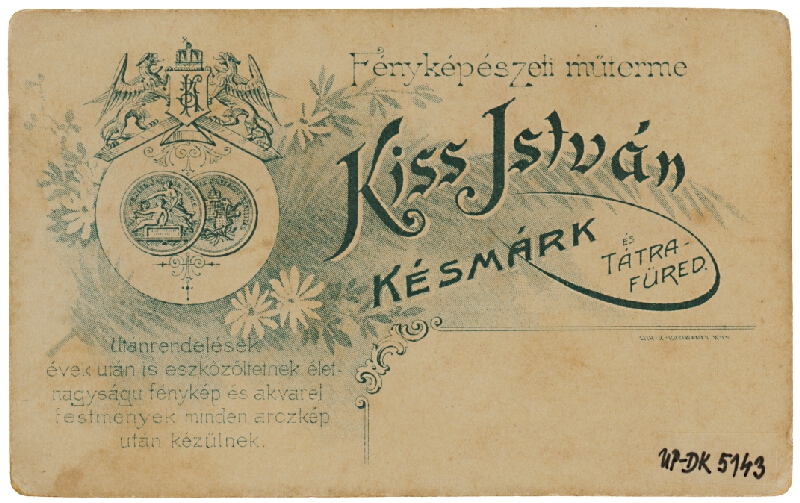 Fényképészeti műterme
Kiss István
KÉSMÁRK
ÉS
TÁTRA-
FÜRED.
Utánrendelések
évek után is eszközöltetnek élet-
nagyságú fénykép és akvarel
festmények minden arczkép
után kézülnek.
UP-DK 5143